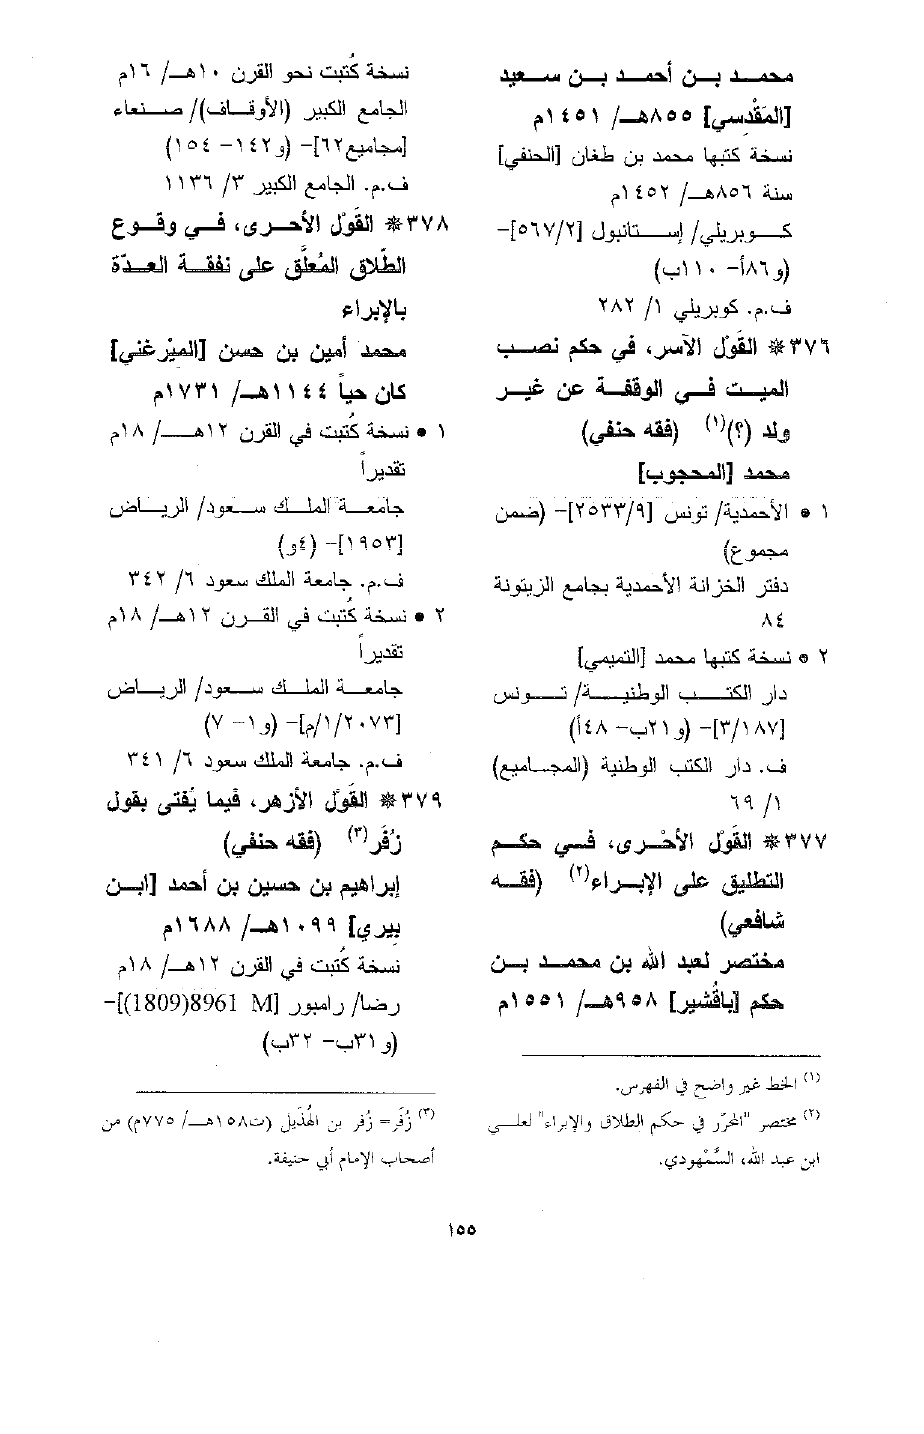 محمد بن أحمد بن سعيد
[المَقْدِسي] ٨٥٥هـ/ ١٤٥١م
نسخة كتبها محمد بن طغان [الحنفي]
سنة ٨٥٦هـ/ ١٤٥٢م
كوبريلي/ إستانبول [٥٦٧/٢]-
(و٨٦أ- ١١٠ب)
ف.م. كوبريلي ١/ ٢٨٢
٣٧٦* القَوْل الآسر، في حكم نصب
الميت في الوقفة عن غير
ولد (؟)(١) (فقه حنفي)
محمد [المحجوب]
١ • الأحمدية/ تونس [٢٥٣٣/٩]- (ضمن
مجموع)
دفتر الخزانة الأحمدية بجامع الزيتونة
٨٤
٢ • نسخة كتبها محمد [التميمي]
دار الكتب الوطنية/ تونس
[٣/١٨٧]- (و٢١ب- ٤٨أ)
ف. دار الكتب الوطنية (المجاميع)
١/ ٦٩
٣٧٧* القَوْل الأحْرى، في حكم
التطليق على الإبراء(٢) (فقه
شافعي)
مختصر لعبد الله بن محمد بن
حكم [باقُشير] ٩٥٨هـ/ ١٥٥١م
(١) الخط غير واضح في الفهرس.
(٢) مختصر "المحرّر في حكم الطلاق والإبراء" لعلي
ابن عبد الله، السَّمْهودي.
نسخة كُتبت نحو القرن ١٠هـ/ ١٦م
الجامع الكبير (الأوقاف)/ صنعاء
[مجاميع٦٢]- (و١٤٢- ١٥٤)
ف.م. الجامع الكبير ٣/ ١١٣٦
٣٧٨* القَوْل الأحرى، في وقوع
الطّلاق المُعلَّق على نفقة العدّة
بالإبراء
محمد أمين بن حسن [الميْرغني]
كان حياً ١١٤٤هـ/ ١٧٣١م
١ • نسخة كُتبت في القرن ١٢هـ/ ١٨م
تقديراً
جامعة الملك سعود/ الرياض
[١٩٥٣]- (٤و)
ف.م. جامعة الملك سعود ٦/ ٣٤٢
٢ • نسخة كُتبت في القرن ١٢هـ/ ١٨م
تقديراً
جامعة الملك سعود/ الرياض
[٢٠٧٣/١/م]- (و١- ٧)
ف.م. جامعة الملك سعود ٦/ ٣٤١
٣٧٩* القَوْل الأزهر، فيما يُفتى بقول
زُفَر(٣) (فقه حنفي)
إبراهيم بن حسين بن أحمد [ابن
بيري] ١٠٩٩هـ/ ١٦٨٨م
نسخة كُتبت في القرن ١٢هـ/ ١٨م
رضا/ رامبور [8961 M(1809)]-
(و٣١ب- ٣٢ب)
(٣) زُفَر= زُفر بن الهُذَيل (ت١٥٨هـ/ ٧٧٥م) من
أصحاب الإمام أبي حنيفة.
١٥٥